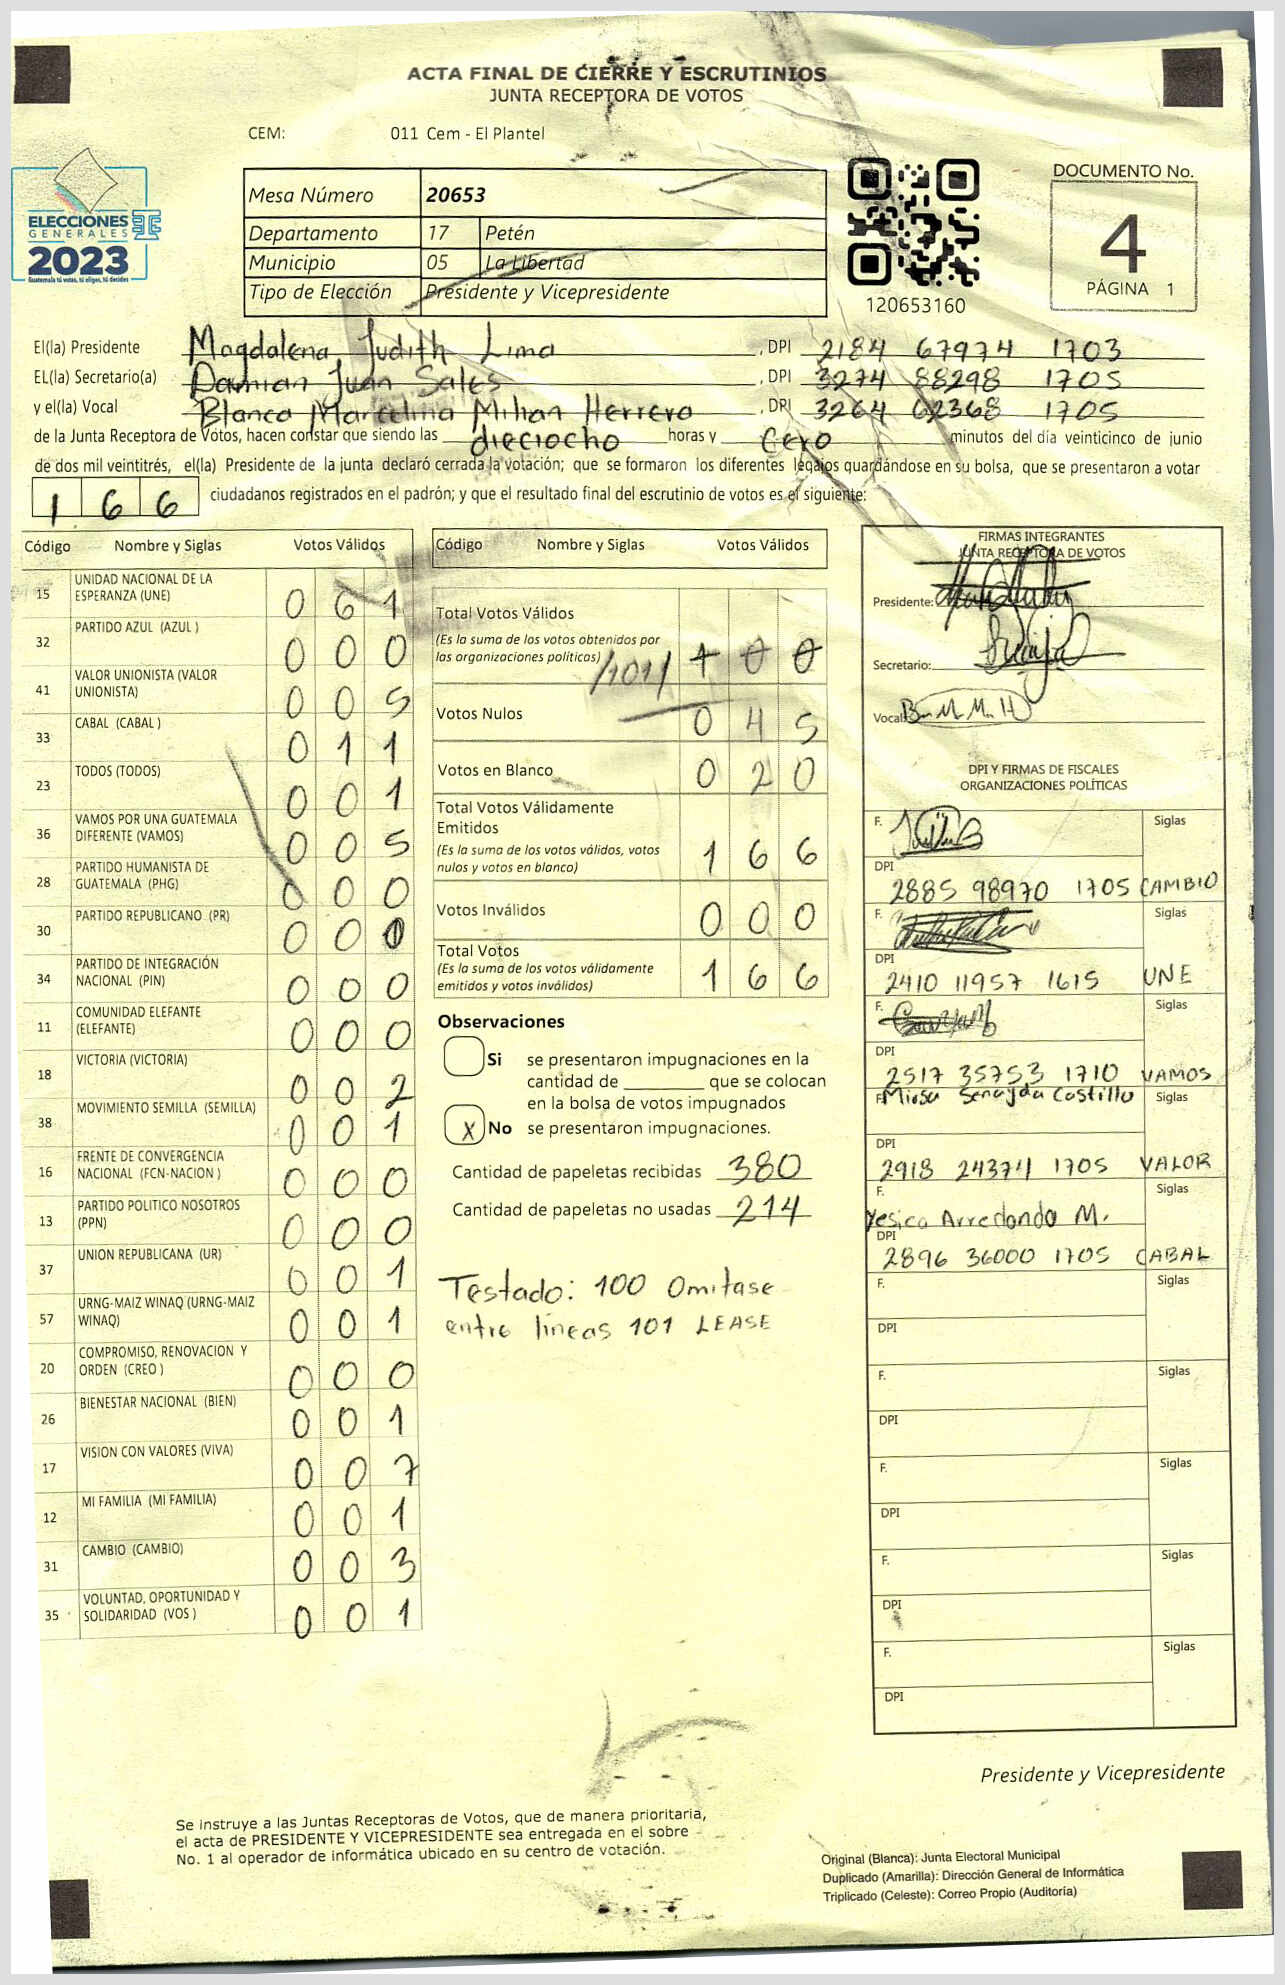 ACTA FINAL DE CIERRE Y ESCRUTINIOS
JUNTA RECEPTORA DE VOTOS
CEM: 011 Cem - El Plantel
ELECCIONES
GENERALES
2023
Guatemala tú votas, tú eliges, tú decides
Mesa Número 20653
Departamento 17 Petén
Municipio 05 La Libertad
Tipo de Elección Presidente y Vicepresidente
120653160
DOCUMENTO No.
4
PÁGINA 1
El(la) Presidente Magdalena Judith Lima, DPI 2184 67974 1703
EL(la) Secretario(a) Damian Juan Sales, DPI 3274 88298 1705
y el(la) Vocal Blanca Marcelina Milian Herrera, DPI 3264 62368 1705
de la Junta Receptora de Votos, hacen constar que siendo las dieciocho horas y cero minutos del día veinticinco de junio
de dos mil veintitrés, el(la) Presidente de la junta declaró cerrada la votación; que se formaron los diferentes legajos guardándose en su bolsa, que se presentaron a votar
166 ciudadanos registrados en el padrón; y que el resultado final del escrutinio de votos es el siguiente:
Código Nombre y Siglas Votos Válidos
15 UNIDAD NACIONAL DE LA ESPERANZA (UNE) 0 6 1
32 PARTIDO AZUL (AZUL ) 0 0 0
41 VALOR UNIONISTA (VALOR UNIONISTA) 0 0 5
33 CABAL (CABAL ) 0 1 1
23 TODOS (TODOS) 0 0 1
36 VAMOS POR UNA GUATEMALA DIFERENTE (VAMOS) 0 0 5
28 PARTIDO HUMANISTA DE GUATEMALA (PHG) 0 0 0
30 PARTIDO REPUBLICANO (PR) 0 0 0
34 PARTIDO DE INTEGRACIÓN NACIONAL (PIN) 0 0 0
11 COMUNIDAD ELEFANTE (ELEFANTE) 0 0 0
18 VICTORIA (VICTORIA) 0 0 2
38 MOVIMIENTO SEMILLA (SEMILLA) 0 0 1
16 FRENTE DE CONVERGENCIA NACIONAL (FCN-NACION ) 0 0 0
13 PARTIDO POLITICO NOSOTROS (PPN) 0 0 0
37 UNION REPUBLICANA (UR) 0 0 1
57 URNG-MAIZ WINAQ (URNG-MAIZ WINAQ) 0 0 1
20 COMPROMISO, RENOVACION Y ORDEN (CREO ) 0 0 0
26 BIENESTAR NACIONAL (BIEN) 0 0 1
17 VISION CON VALORES (VIVA) 0 0 7
12 MI FAMILIA (MI FAMILIA) 0 0 1
31 CAMBIO (CAMBIO) 0 0 3
35 VOLUNTAD, OPORTUNIDAD Y SOLIDARIDAD (VOS ) 0 0 1
Código Nombre y Siglas Votos Válidos
Total Votos Válidos
(Es la suma de los votos obtenidos por
las organizaciones políticas) /101/ 1 0 0
Votos Nulos 0 4 5
Votos en Blanco 0 2 0
Total Votos Válidamente
Emitidos
(Es la suma de los votos válidos, votos
nulos y votos en blanco) 1 6 6
Votos Inválidos 0 0 0
Total Votos
(Es la suma de los votos válidamente
emitidos y votos inválidos) 1 6 6
Observaciones
Si se presentaron impugnaciones en la
cantidad de ________ que se colocan
en la bolsa de votos impugnados
X No se presentaron impugnaciones.
Cantidad de papeletas recibidas 380
Cantidad de papeletas no usadas 214
Testado: 100 Omitase
entre líneas 101 LEASE
FIRMAS INTEGRANTES
JUNTA RECEPTORA DE VOTOS
Presidente:
Secretario:
Vocal: B. M. M. H
DPI Y FIRMAS DE FISCALES
ORGANIZACIONES POLÍTICAS
F. Siglas
DPI
2885 98970 1705 CAMBIO
F. Siglas
DPI
2410 11957 1615 UNE
F. Siglas
DPI
2517 35753 1710 VAMOS
F. Mirsa Senayda Castillo Siglas
DPI
2918 24374 1705 VALOR
F. Siglas
Yesica Arredondo M.
DPI
2896 36000 1705 CABAL
F. Siglas
DPI
F. Siglas
DPI
F. Siglas
DPI
F. Siglas
DPI
F. Siglas
DPI
Presidente y Vicepresidente
Se instruye a las Juntas Receptoras de Votos, que de manera prioritaria,
el acta de PRESIDENTE Y VICEPRESIDENTE sea entregada en el sobre
No. 1 al operador de informática ubicado en su centro de votación.
Original (Blanca): Junta Electoral Municipal
Duplicado (Amarilla): Dirección General de Informática
Triplicado (Celeste): Correo Propio (Auditoría)